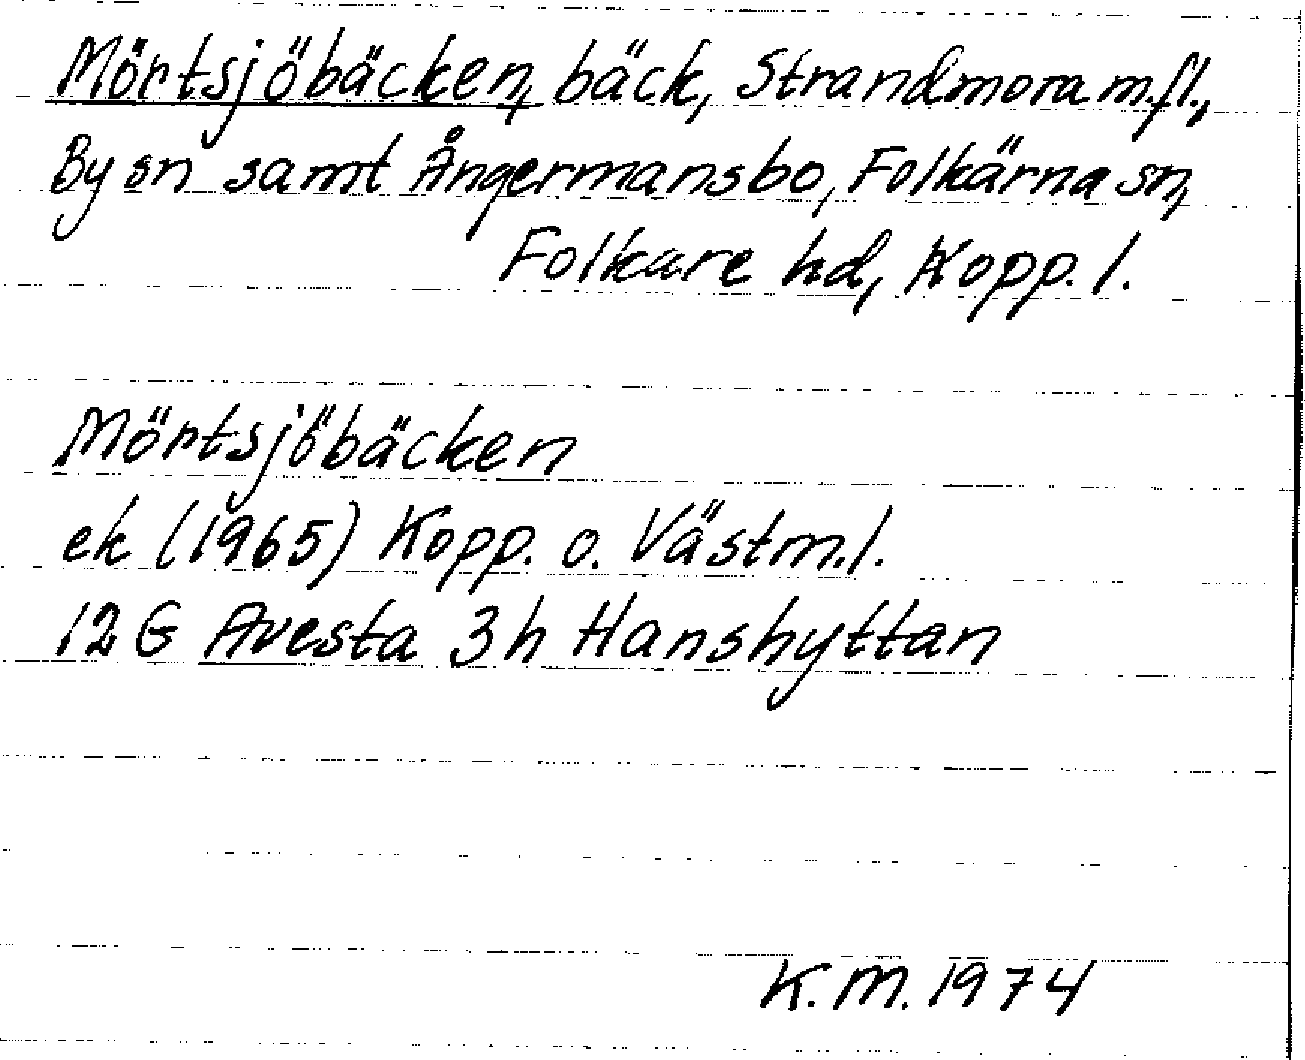 Mörtsjöbäcken, bäck, Strandmora m.fl.,
By sn samt Ångermansbo, Folkärna sn,
Folkare hd, Kopp. l.
Mörtsjöbäcken
ek (1965) Kopp. o. Västm.l.
12 G Avesta 3h Hanshyttan
K.M. 1974